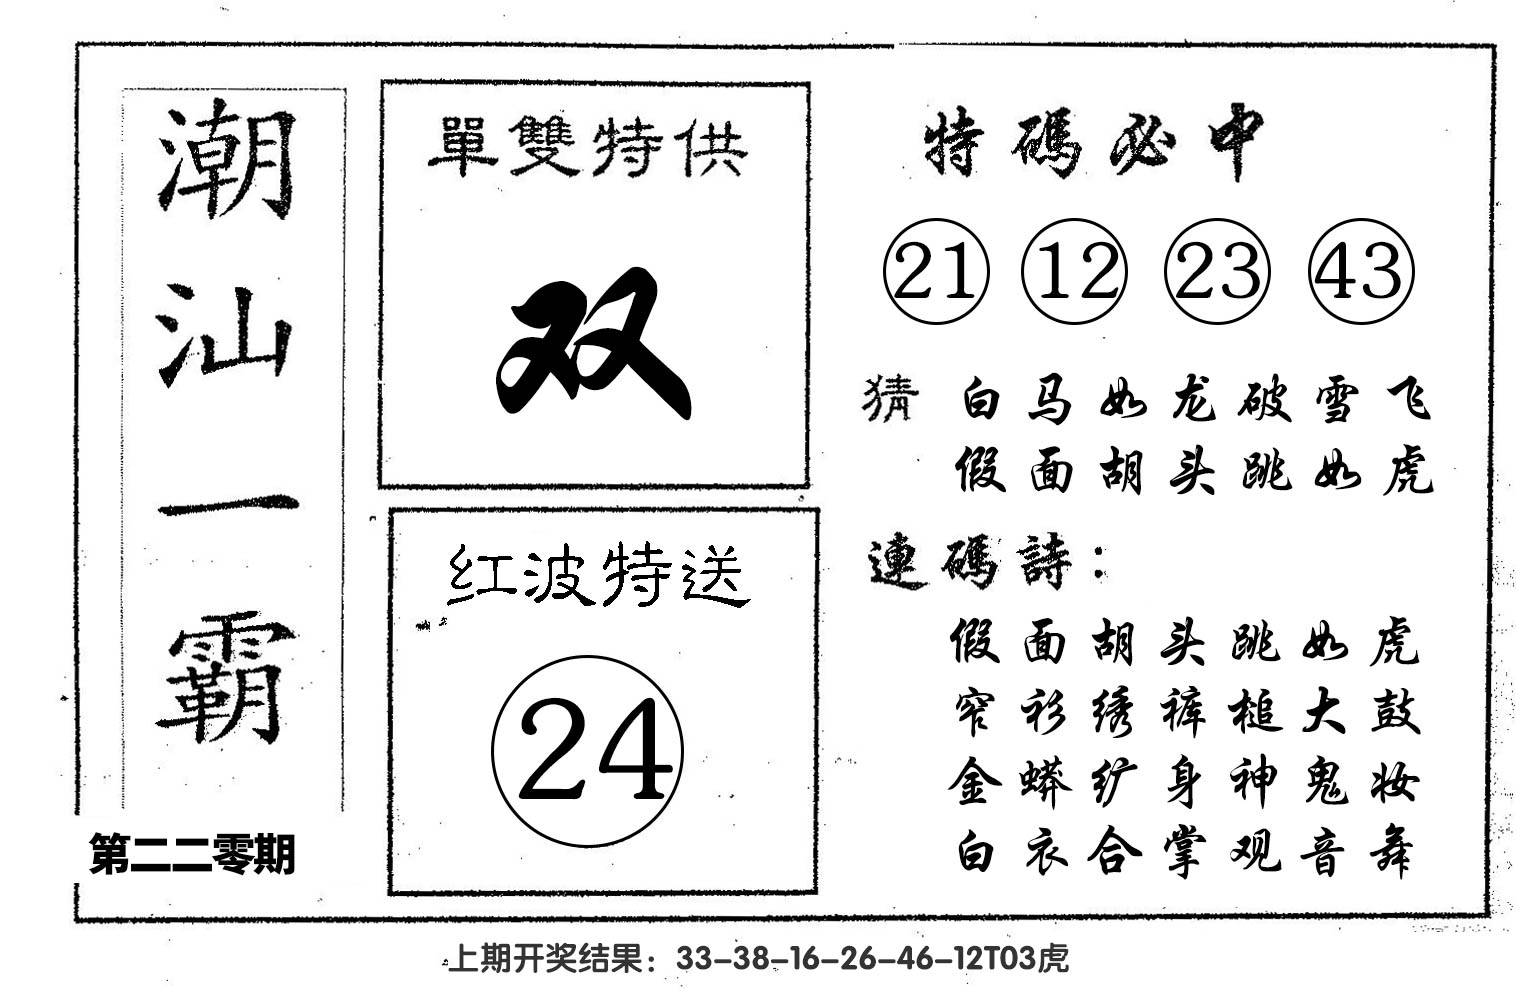 潮汕一霸
第二二零期
單雙特供
双
红波特送
24
特碼必中
21 12 23 43
猜 白马如龙破雪飞
假面胡头跳如虎
連碼詩：
假面胡头跳如虎
窄衫绣裤槌大鼓
金蟒纩身神鬼妆
白衣合掌观音舞
上期开奖结果：33-38-16-26-46-12T03虎